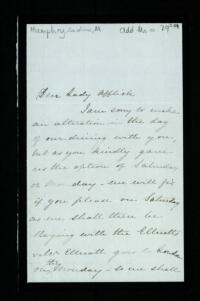 Dear Lady Affleck
I am sorry to make
an alteration in the day
of our dining with you,
but as you kindly gave
us the option of Saturday
or Monday - we will fix
if you please on Saturday
as we shall then be
staying with the
goes to London
on Monday - so we shall